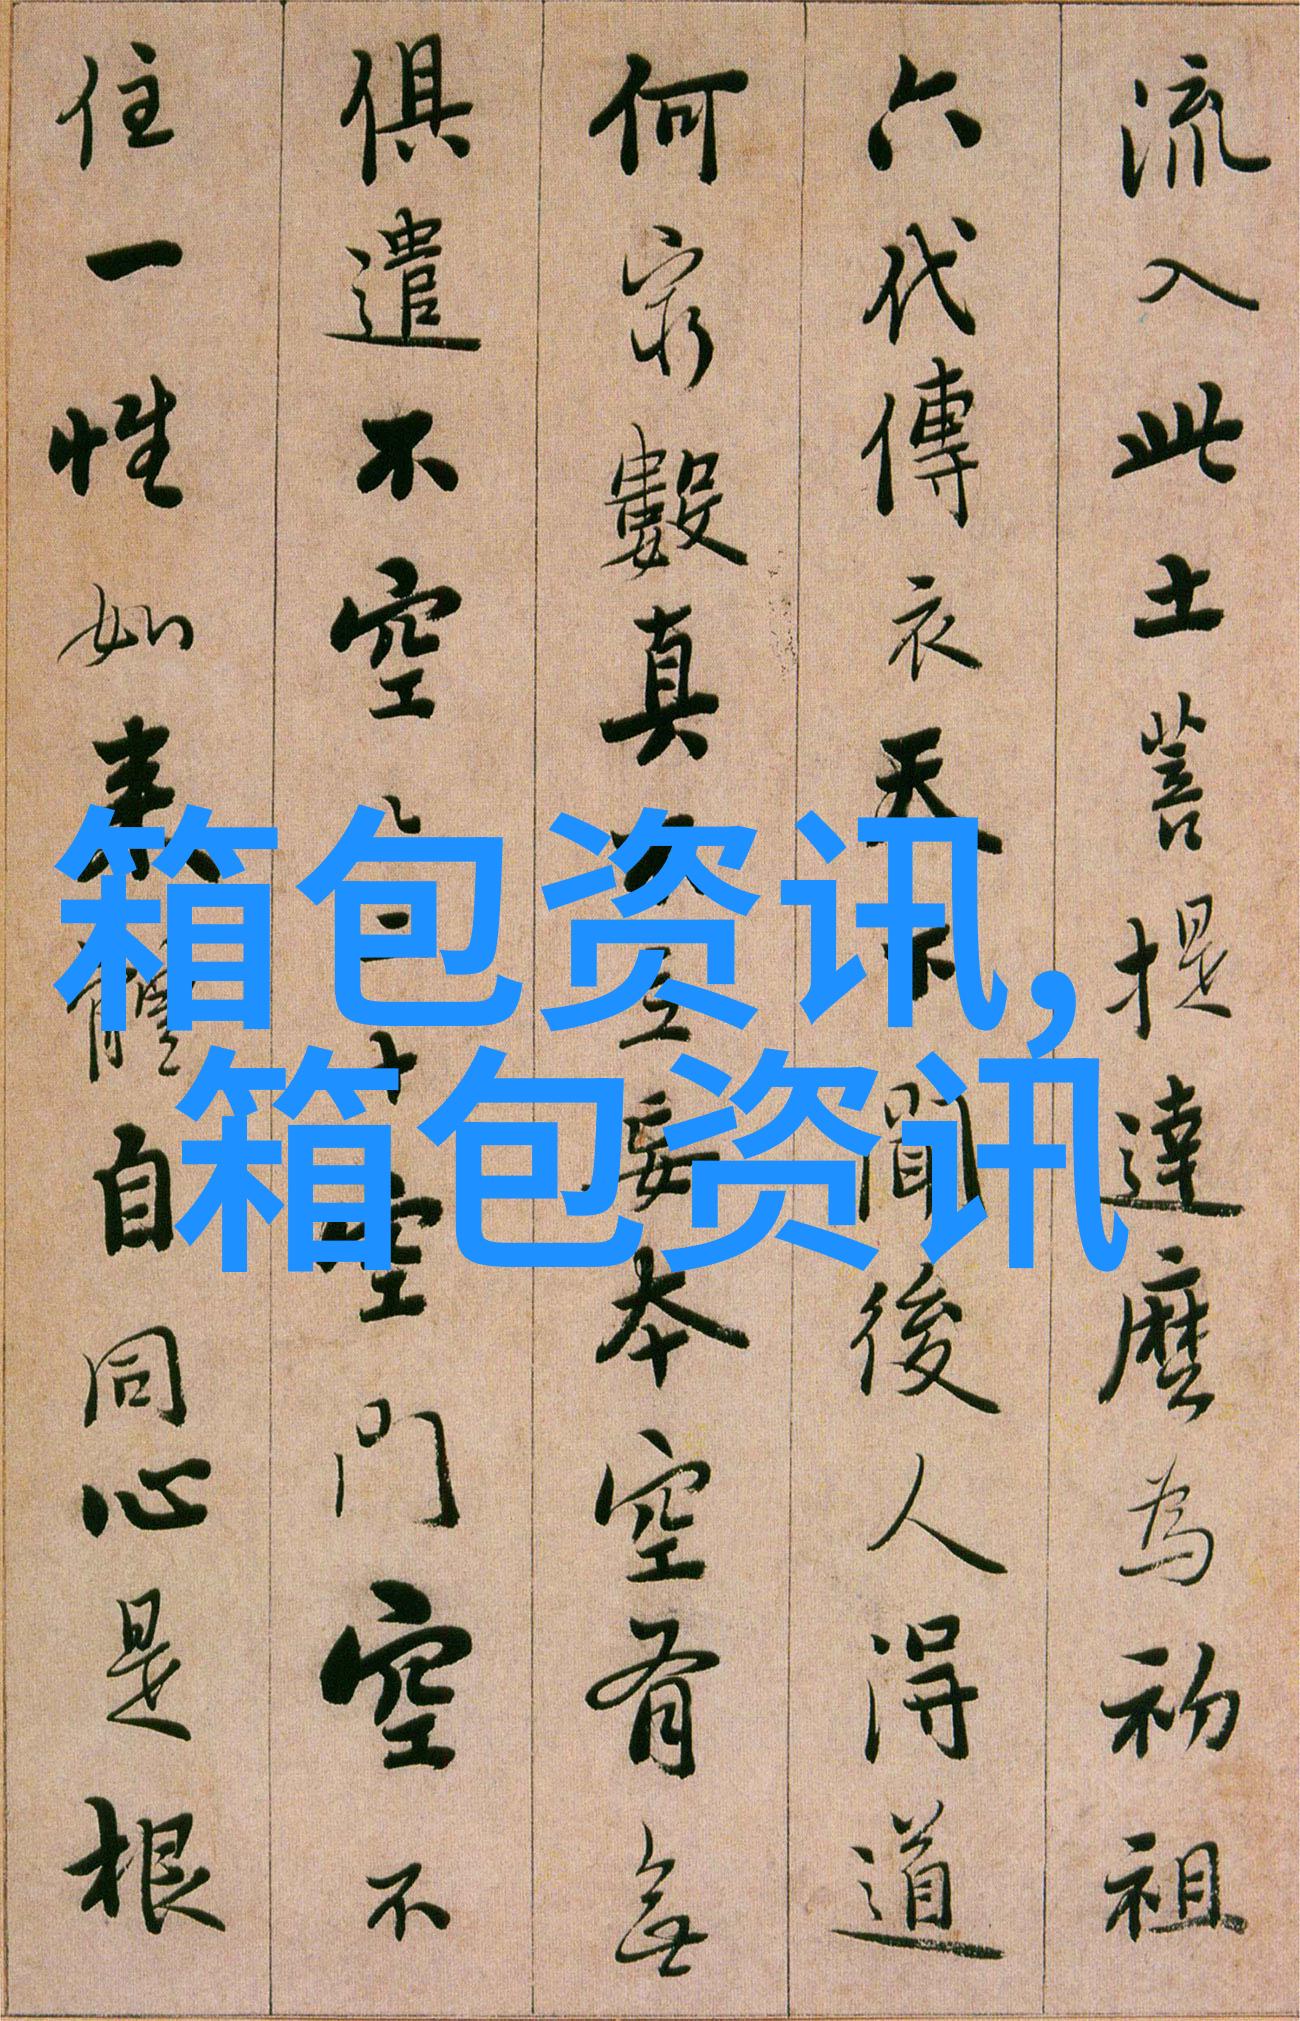 流入此土菩提達磨為初祖
六代傳衣天下聞後人得道
何窮數真不立妄本空有無
俱遣不空空二十空門空不
住一性如來體自同心是根
箱包资讯,
箱包资讯